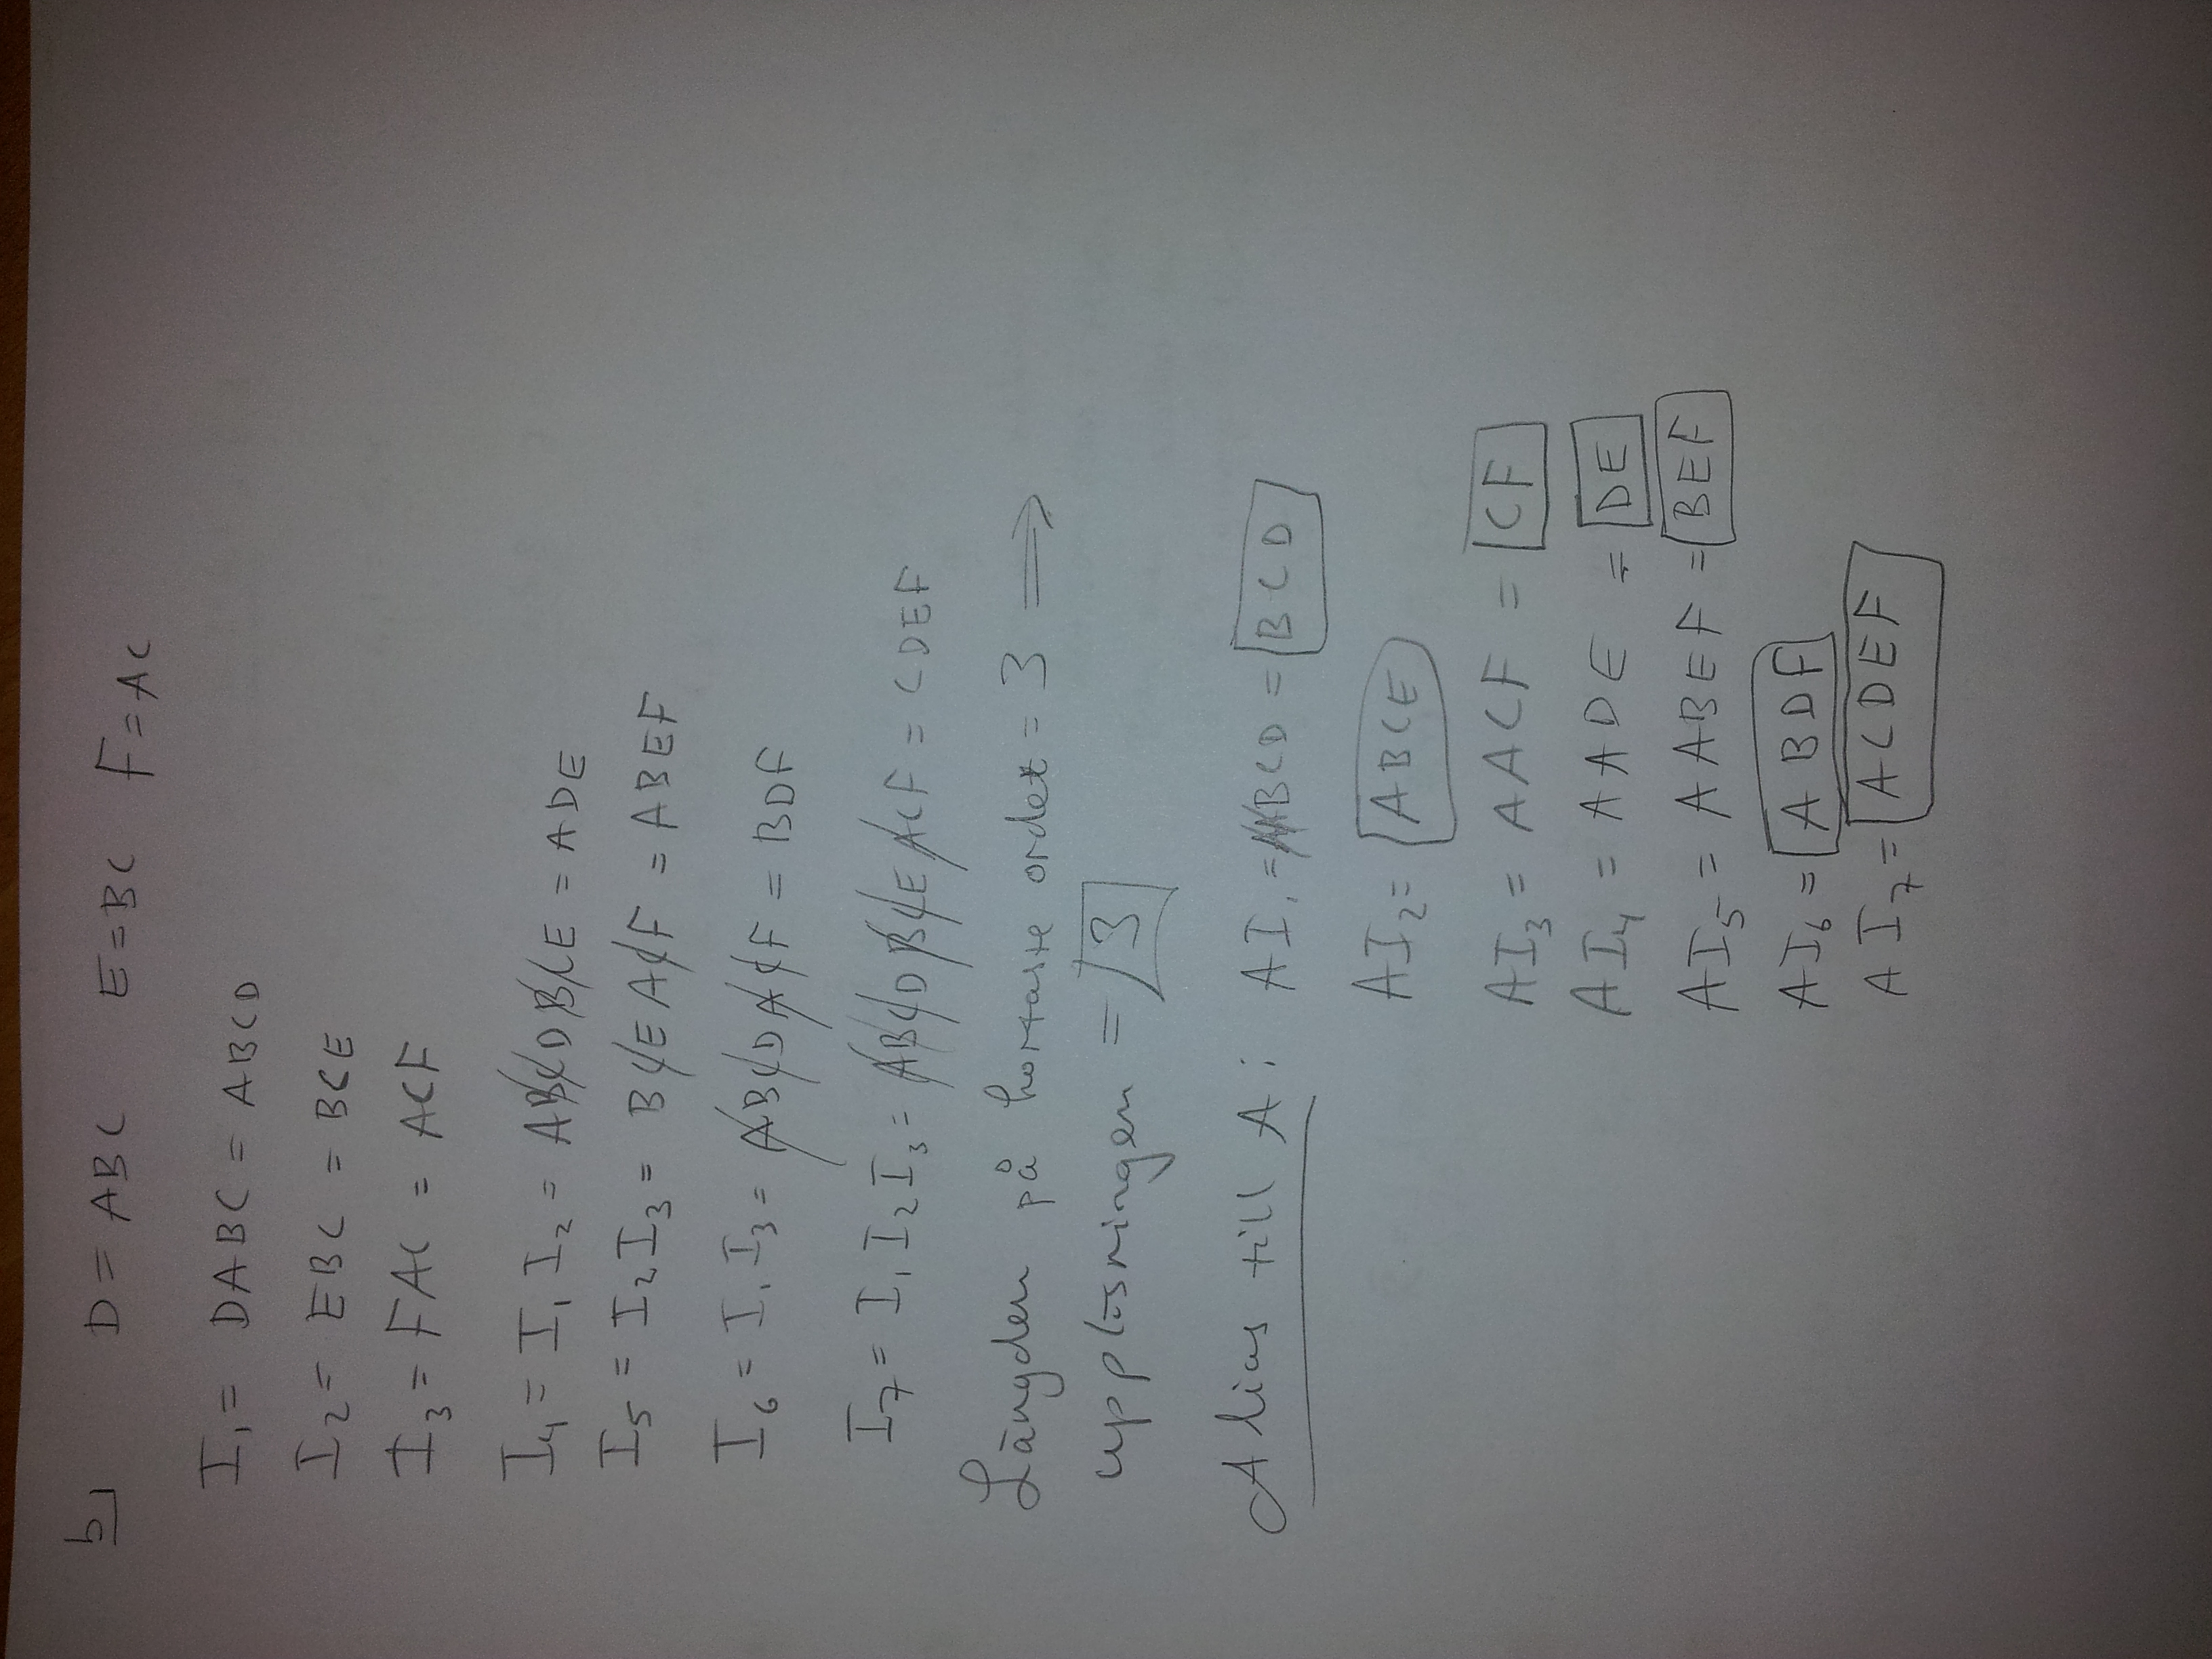 b) D = ABC E = BC F = AC
I₁ = DABC = ABCD
I₂ = EBC = BCE
I₃ = FAC = ACF
I₄ = I₁ I₂ = ABCDBCE = ADE
I₅ = I₂ I₃ = BCEACF = ABEF
I₆ = I₁ I₃ = ABCDACF = BDF
I₇ = I₁ I₂ I₃ = ABCDBCEACF = CDEF
Längden på kortaste ordet = 3 ⟹
upplösningen = 3
Alias till A: AI₁ = AABCD = BCD
AI₂ = ABCE
AI₃ = AACF = CF
AI₄ = AADE = DE
AI₅ = AABEF = BEF
AI₆ = ABDF
AI₇ = ACDEF